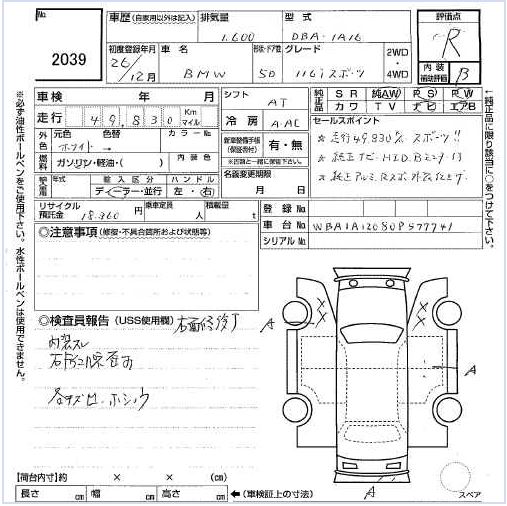 No.
2039
車歴 (自家用以外は記入)
排気量 1,600
型式 DBA-1A16
評価点 R
初度登録年月 26/12月
車名 BMW
形状・ドア数 5D
グレード 116i スポーツ
2WD・4WD
内装補助評価 B
車検 年 月
シフト AT
純正品 SR 純AW PS PW カワ TV ナビ エアB
走行 49,830 Km マイル
冷房 A-AC
セールスポイント
外色 元色 色替 カラーNo.
ホワイト →
新車整備手帳(保証書付) 有・無
※古銭と一緒に保管下さい
☆ 走行49,830% スポーツ!!
☆ 純正ナビ H.I.D. Bモニター付
燃料 ガソリン・軽油・( ) 内装色
名義変更期限 月 日
☆ 純正アルミ
輸入車 年式 輸入区分 ハンドル
ディーラー・並行 左・右
リサイクル預託金 18,360 円
乗車定員 人
積載量 t
登録No.
車台No. WBA1A12080P577741
シリアルNo.
◎注意事項 (修復・不具合箇所および状態等)
◎検査員報告 (USS使用欄) 右面修復
内装スレ
各キズ凹、ホシュウ
A
X
X
X
X
A
A
【荷台内寸】約 × × (cm)
長さ cm 幅 cm 高さ cm ←(車検証上の寸法)
スペア
※必ず油性ボールペンをご使用下さい。水性ボールペンは使用できません。
↑純正品に限り該当に○をつけて下さい。